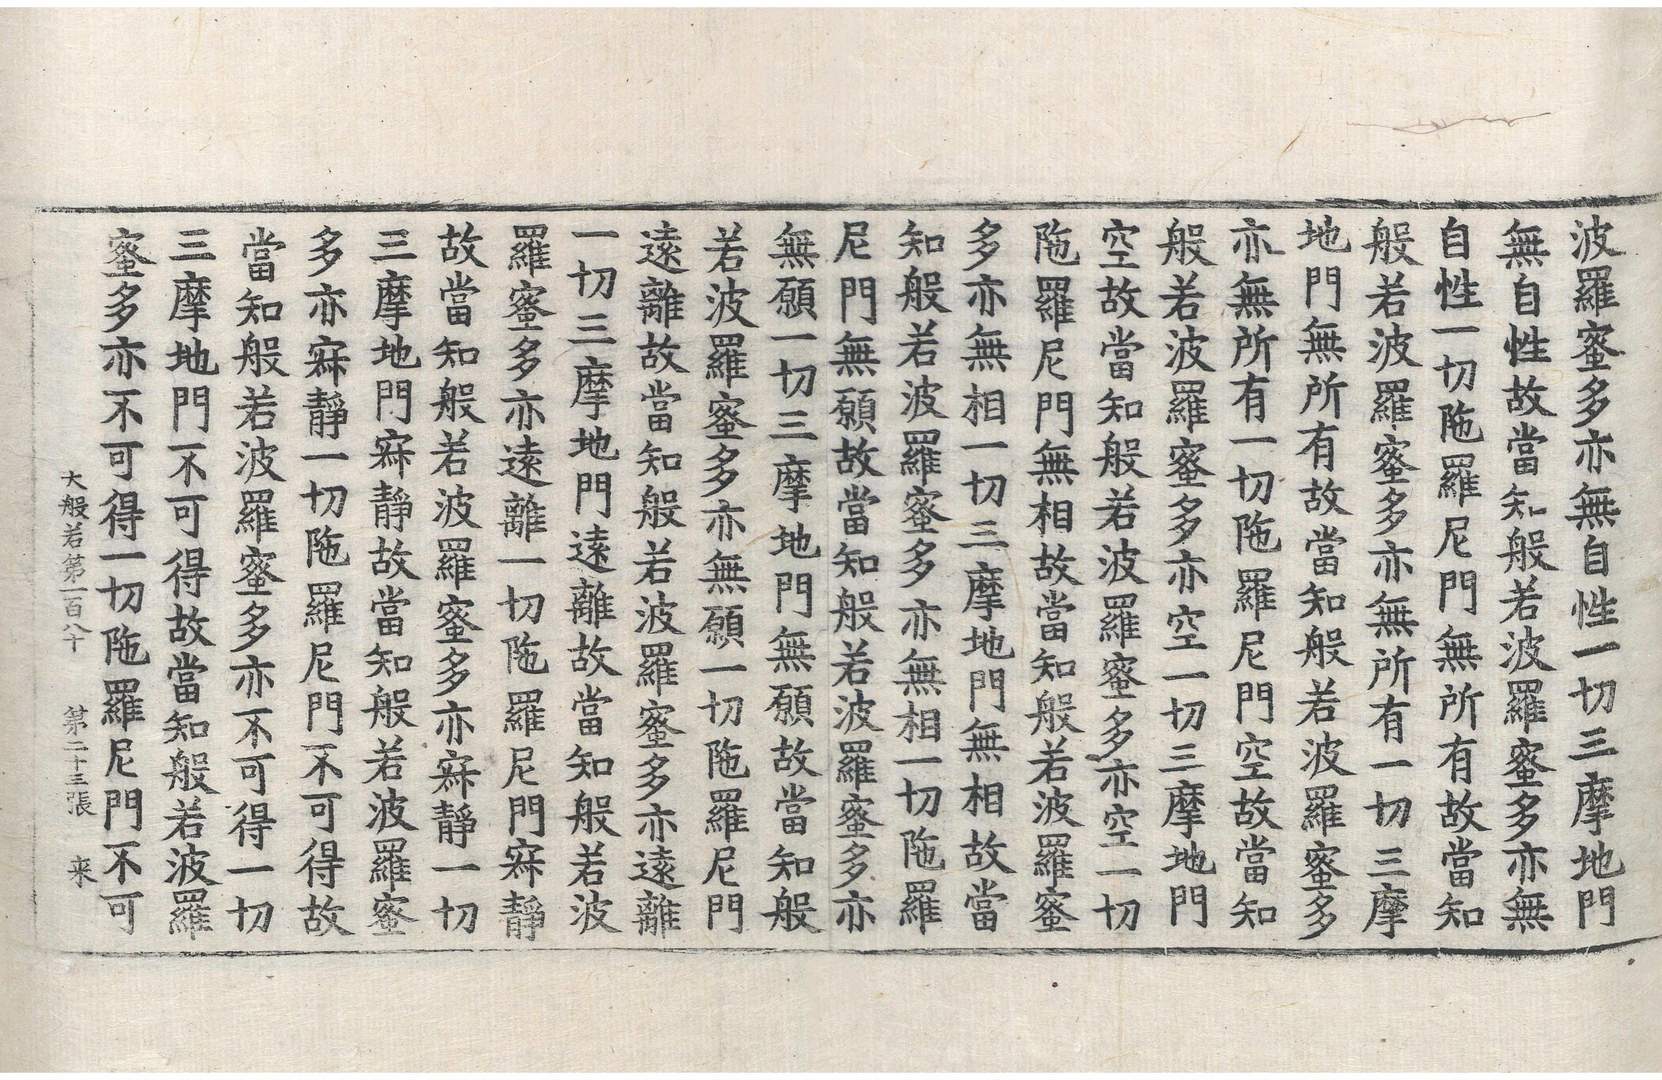 波羅蜜多亦無自性一切三摩地門
無自性故當知般若波羅蜜多亦無
自性一切陁羅尼門無所有故當知
般若波羅蜜多亦無所有一切三摩
地門無所有故當知般若波羅蜜多
亦無所有一切陁羅尼門空故當知
般若波羅蜜多亦空一切三摩地門
空故當知般若波羅蜜多亦空一切
陁羅尼門無相故當知般若波羅蜜
多亦無相一切三摩地門無相故當
知般若波羅蜜多亦無相一切陁羅
尼門無願故當知般若波羅蜜多亦
無願一切三摩地門無願故當知般
若波羅蜜多亦無願一切陁羅尼門
遠離故當知般若波羅蜜多亦遠離
一切三摩地門遠離故當知般若波
羅蜜多亦遠離一切陁羅尼門寂靜
故當知般若波羅蜜多亦寂靜一切
三摩地門寂靜故當知般若波羅蜜
多亦寂靜一切陁羅尼門不可得故
當知般若波羅蜜多亦不可得一切
三摩地門不可得故當知般若波羅
蜜多亦不可得一切陁羅尼門不可
大般若第一百八十 第二十三張 来